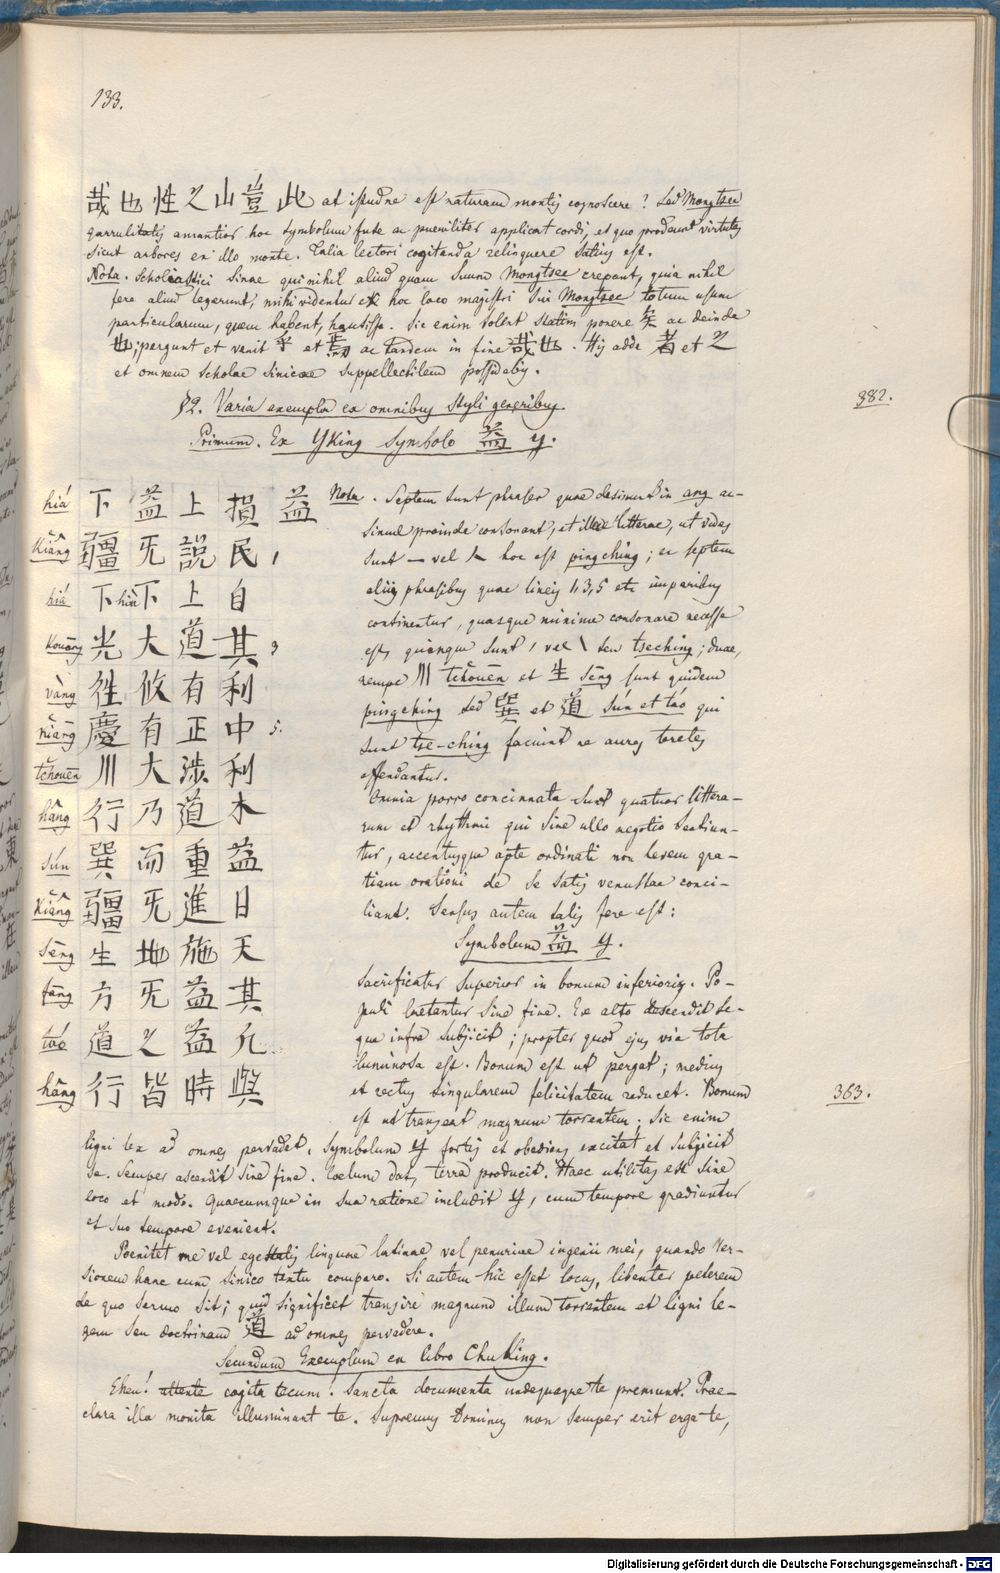 133.
哉也性之山豈此 at istudne est naturam montis cognoscere? Sed Mongtsee
garrulitatis amantior hoc symbolum fuse ac pueriliter applicat cordi, et quo prodeunt virtutes
sicut arbores ex illo monte. Talia lectori cogitanda relinquere satius est.
Nota. Scholiastici Sinae qui nihil aliud quam suum Mongtsee crepant, quia nihil
fere aliud legerunt, mihi videntur ex hoc loco magistri sui Mongtsee totum usum
particularum, quem habent, hausisse. Sic enim solent statim ponere 矣 ac deinde
也; pergunt et venit 乎 et 焉 ac tandem in fine 哉也. His adde 者 et 之
et omnem Scholae Sinicae suppellectilem possidebis.
§2. Varia exempla ex omnibus styli generibus.
382.
Primum. Ex Yking Symbolo 益 y.
hiá 下益上損益
Kiāng 疆旡說民,
hiá 下 hiá 下上自
Kouāng 光大道其 3
vàng 徃攸有利
Kiāng 慶有正中 5.
tchouēn 川大涉利
hâng 行乃道木
sún 巽而重益
Kiāng 疆旡進日
Sēng 生地施天
fāng 方旡益其
táo 道之益凡
hâng 行皆時與
Nota. Septem sunt phrases quae desinunt in ang ac
simul proinde consonant, et illae litterae, ut vides
sunt — vel Λ hoc est pingching; ex septem
aliis phrasibus quae lineis 1, 3, 5 etc imparibus
continentur, quasque minime consonare necesse
est, quinque sunt / vel \ seu tseching; duae,
nempe 川 tchouēn et 生 sēng sunt quidem
pingching sed 巽 et 道 sún et táo qui
sunt tse-ching faciunt ne aures teretes
offendantur.
Omnia porro concinnata sunt quatuor littera-
rum et rhythmi qui sine ullo negotio sentiun-
tur, accentusque apte ordinati non levem gra-
tiam orationi de se satis venustae conci-
liant. Sensus autem talis fere est:
Symbolum 益 y.
Sacrificatur superior in bonum inferioris. Po-
puli laetantur sine fine. Ex alto descendit se-
que infra subjicit; propter quod ejus via tota
luminosa est. Bonum est ut pergat; medius
et rectus singularem felicitatem reducet. Bonum
363.
est ut transeat magnum torrentem. Sic enim
ligni lex ad omnes pervadet. Symbolum y fortis et obediens excitat et subjicit
se. Semper ascendit sine fine. Coelum dat, terra producit. Haec utilitas est sine
loco et modo. Quaecumque in sua ratione includit y, cum tempore gradiuntur
et suo tempore evenient.
Poenitet me vel egestatis linguae latinae vel penuriae ingenii mei, quando ver-
sionem hanc cum sinico textu comparo. Si autem hic esset locus, libenter peterem
de quo sermo sit; quid significet transire magnum illum torrentem et ligni le-
gem seu doctrinam 道 ad omnes pervadere.
Secundum Exemplum ex libro Chu King.
Eheu! attente cogita tecum! Sancta documenta undequaque te premunt. Prae-
clara illa monita illuminant te. Supremus Dominus non semper erit erga te,
Digitalisierung gefördert durch die Deutsche Forschungsgemeinschaft - DFG